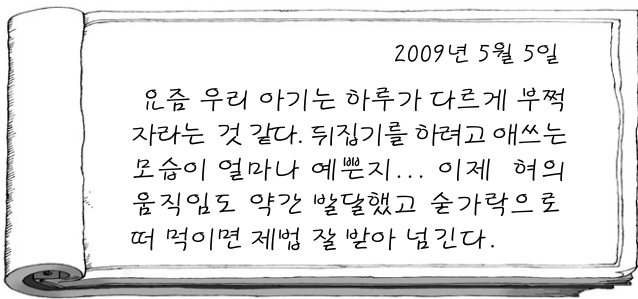 2009년 5월 5일
요즘 우리 아기는 하루가 다르게 부쩍
자라는 것 같다. 뒤집기를 하려고 애쓰는
모습이 얼마나 예쁜지... 이제 혀의
움직임도 약간 발달했고 숟가락으로
떠 먹이면 제법 잘 받아 넘긴다.